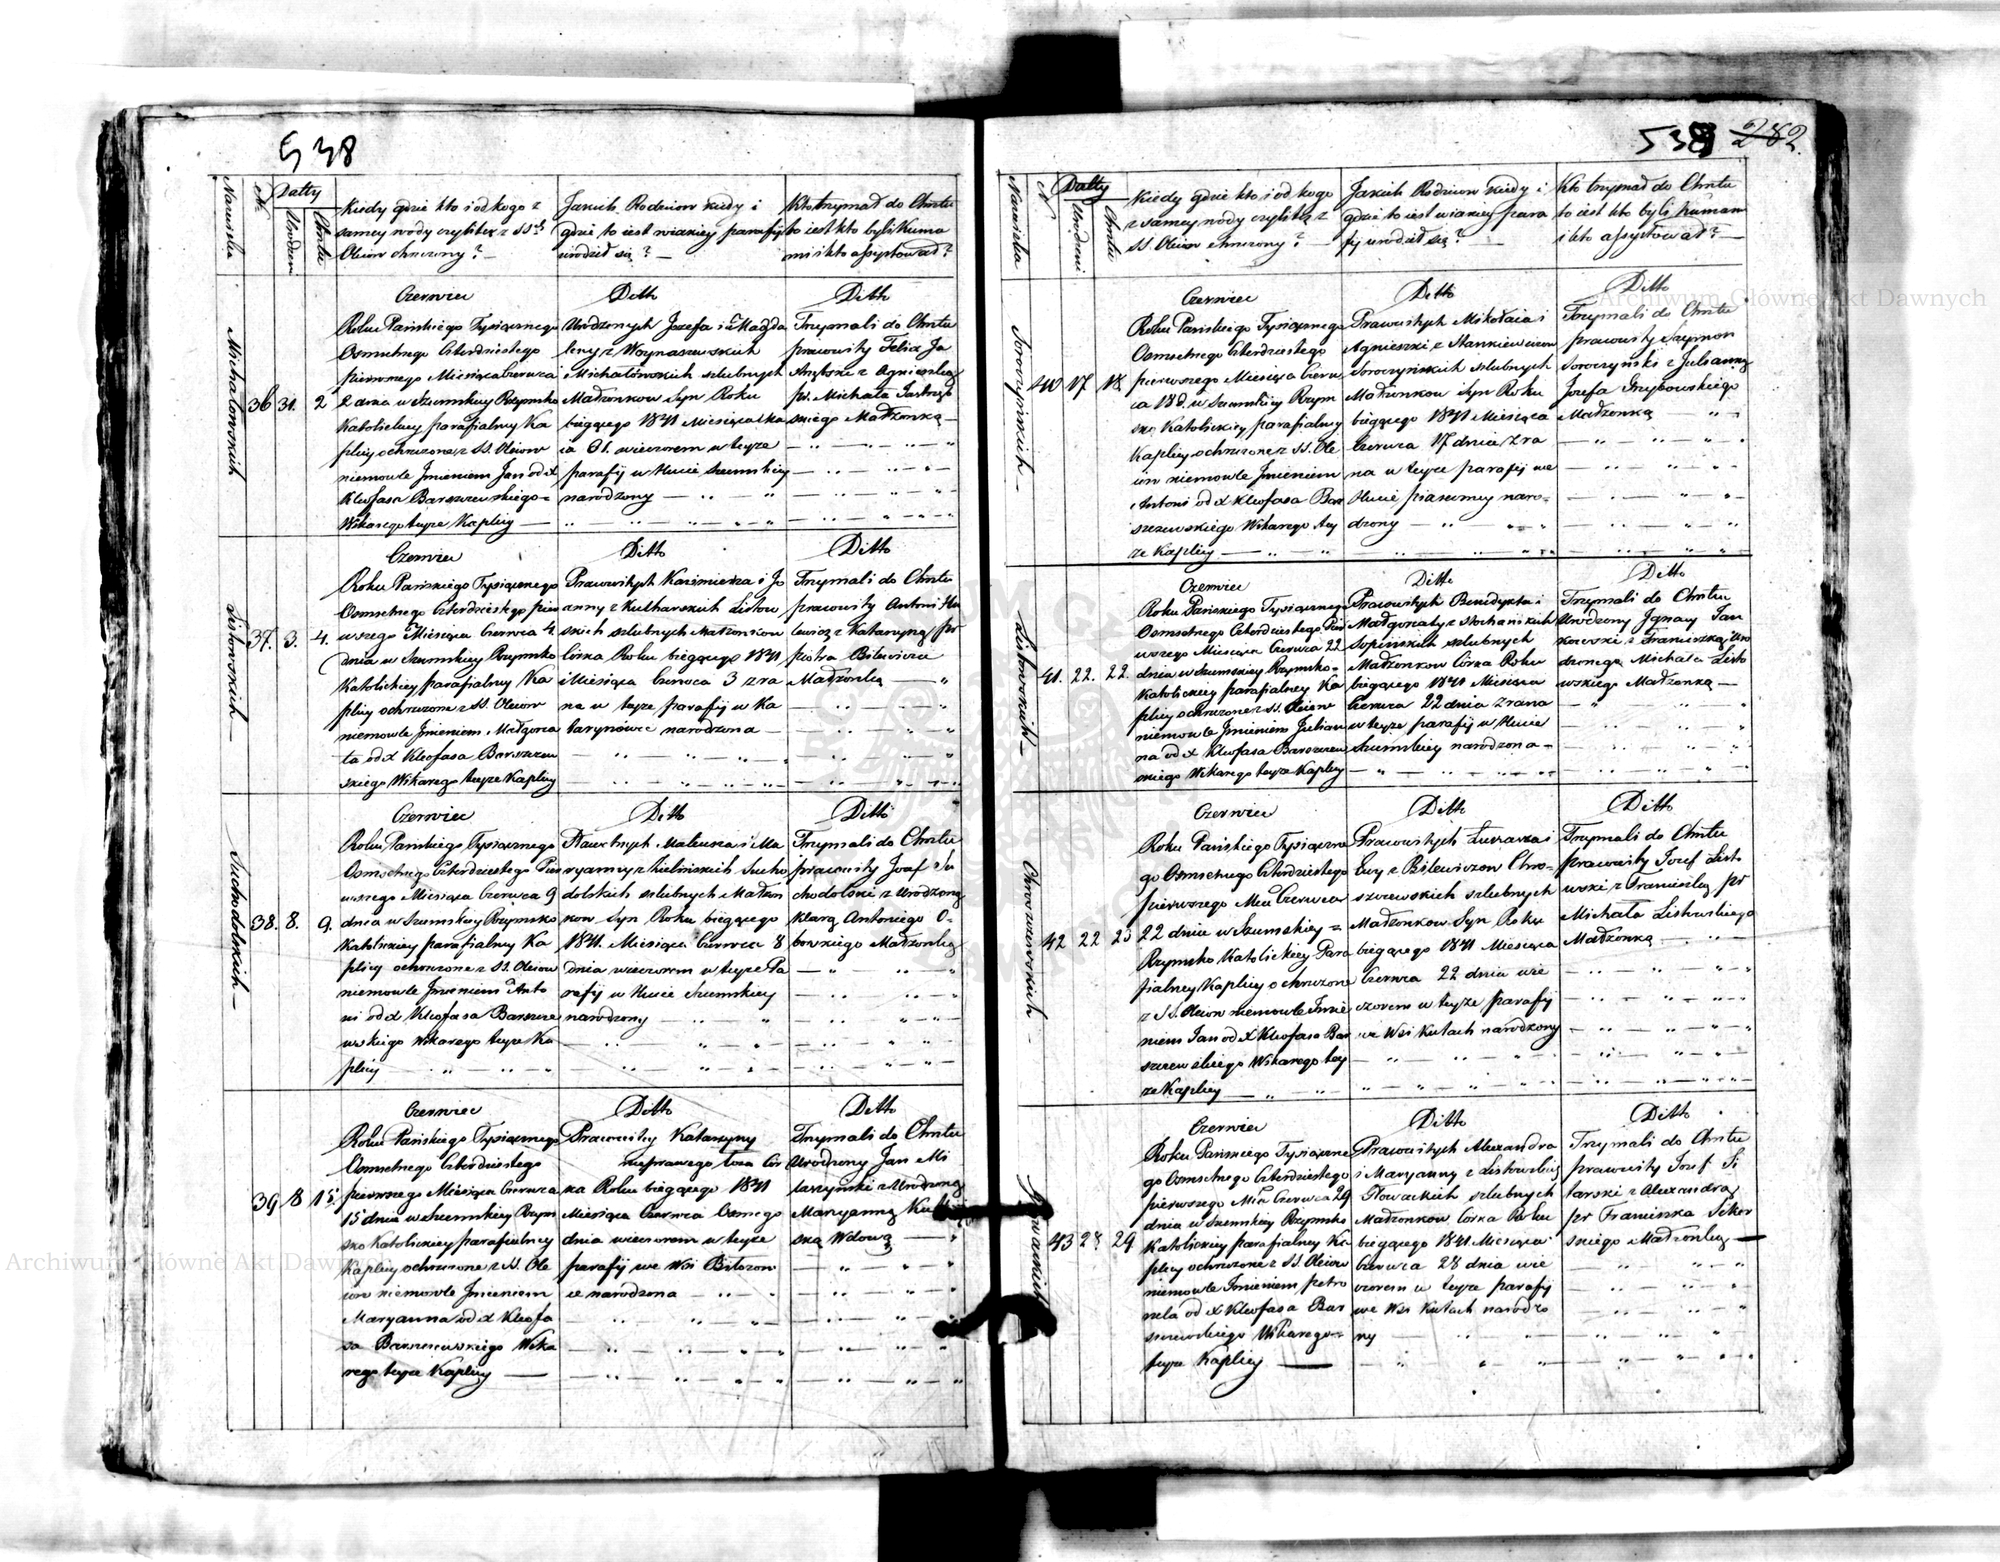 538
Nazwiska
№
Datty
Urodzeni
Chrztu
Kiedy gdzie kto i od kogo z
samey wody czyli też z SS.ch
Oleiow chrzczony? —
Jakich Rodzicow kiedy i
gdzie to iest w iakiey parafij
urodził się? —
Kto trzymał do Chrztu
to iest kto byli Kuma
mi i kto assystował?
Michałowskich
36
31.
2
Czerwiec
Roku Pańskiego Tysiącznego
Osmsetnego Czterdziestego
pierwszego Miesiąca Czerwca
2 dnia w Szumskiey Rzymsko
Katolickiey parafialney Ka
plicy ochrzczone z SS. Oleiow
niemowle Jmieniem Jan od X
Kleofasa Barszczewskiego =
Wikarego teyże Kaplicy —
Ditto
Urodzonych Jozefa i Magda
leny z Woynaszewskich
Michałowskich szlubnych
Małżonkow Syn Roku
bieżącego 1841 Miesiąca Ma
ia 31. wieczorem w teyże
parafij w Hucie Szumskiey
narodzony —
Ditto
Trzymali do Chrztu
prawowity Felix Ja
z Agnieszką
pr. Michała
skiego Małżonką —
Listowskich —
37.
3.
4.
Czerwiec
Roku Pańskiego Tysiącznego
Osmsetnego Czterdziestego pier
wszego Miesiąca Czerwca 4.
dnia w Szumskiey Rzymsko
Katolickiey parafialney Ka
plicy ochrzczone z SS. Oleiow
niemowle Jmieniem Małgorza
ta od X Kleofasa Barszczew
skiego Wikarego teyże Kaplicy
Ditto
Prawowitych Kazimierza i Jo
anny z Listow
skich szlubnych Małżonkow
Córka Roku bieżącego 1841
Miesiąca Czerwca 3 z ra
na w teyże parafij w Ka
tarynówce narodzona —
Ditto
Trzymali do Chrztu
prawowity Antoni
lewicz z Katarzyną pr
Piotra Bilewicza
Małżonką —
Suchodolskich —
38.
8.
9.
Czerwiec
Roku Pańskiego Tysiącznego
Osmsetnego Czterdziestego Pier
wszego Miesiąca Czerwca 9
dnia w Szumskiey Rzymsko
Katolickiey parafialney Ka
plicy ochrzczone z SS. Oleiow
niemowle Jmieniem Anto
ni od X Kleofasa Barszcze
wskiego Wikarego teyże Ka
plicy —
Ditto
Prawowitych Mateusza i Ma
ryanny z Zielińskich Sucho
dolskich szlubnych Małżon
kow Syn Roku bieżącego
1841. Miesiąca Czerwca 8
dnia wieczorem w teyże Pa
rafij w Hucie Szumskiey
narodzony —
Ditto
Trzymali do Chrztu
prawowity Jozef Su
chodolski z Urodzoną
Klarą Antoniego O-
bowskiego Małżonką
39
8
15.
Czerwiec
Roku Pańskiego Tysiącznego
Osmsetnego Czterdziestego
pierwszego Miesiąca Czerwca
15 dnia w Szumskiey Rzym
sko Katolickiey parafialney
Kaplicy ochrzczone z SS. Ole
iow niemowle Jmieniem
Maryanna od X Kleofa
sa Barszczewskiego Wika
rego teyże Kaplicy —
Ditto
Prawowitey Katarzyny
nieprawego łoża Cór
ka Roku bieżącego 1841
Miesiąca Czerwca Osmego
dnia wieczorem w teyże
parafij we Wsi
narodzona —
Ditto
Trzymali do Chrztu
Urodzony Jan Mi
z Urodzoną
Maryanną
ską Wdową —
282
Nazwiska
N.
Datty
Urodzeni
Chrztu
Kiedy gdzie kto i od kogo
z samey wody czyli też z
SS. Oleiow chrzczony? —
Jakich Rodzicow kiedy i
gdzie to iest w iakiey para
fij urodził się? —
Kto trzymał do Chrztu
to iest kto byli Kumam
i kto assystował? —
Soroczyńskich —
40
17
18
Czerwiec
Roku Pańskiego Tysiącznego
Osmsetnego Czterdziestego
pierwszego Miesiąca Czerw
ca 18 d. w Szumskiey Rzym
sko Katolickiey parafialney
Kaplicy ochrzczone z SS. Ole
iow niemowle Jmieniem
Antoni od X Kleofasa Bar
szczewskiego Wikarego tey
że Kaplicy —
Ditto
Prawowitych Mikołaia i
Agnieszki z Stankiewiczow
Soroczyńskich szlubnych
Małżonkow Syn Roku
bieżącego 1841 Miesiąca
Czerwca 17 dnia z ra
na w teyże parafij we
Hucie piaseczney naro-
dzony —
Ditto
Trzymali do Chrztu
prawowity Szymon
Soroczyński z Julianną
Jozefa Grzybowskiego
Małżonką
41.
22.
22.
Czerwiec
Roku Pańskiego Tysiącznego
Osmsetnego Czterdziestego Pier
wszego Miesiąca Czerwca 22
dnia w Szumskiey Rzymsko=
Katolickiey parafialney Ka
plicy ochrzczone z SS. Oleiow
niemowle Jmieniem Julian
na od X Kleofasa Barszczew
skiego Wikarego teyże Kaplicy
Ditto
Prawowitych Benedykta i
Małgorzaty z
szlubnych
Małżonkow Córka Roku
bieżącego 1841 Miesiąca
Czerwca 22 dnia z rana
w teyże parafij w Hucie
Szumskiey narodzona —
Ditto
Trzymali do Chrztu
Urodzony Jgnacy Jan
kowski z Franciszką Uro
dzonego Michała Listo
wskiego Małżonką —
Chroszczewskich —
42
22
23
Czerwiec
Roku Pańskiego Tysiączne
go Osmsetnego Czterdziestego
pierwszego Mca Czerwca
22 dnia w Szumskiey =
Rzymsko Katolickiey Para
fialney Kaplicy ochrzczone
z SS. Oleiow niemowle Jmie
niem Jan od X Kleofasa Bar
szczewskiego Wikarego tey
że Kaplicy —
Ditto
Prawowitych Łukasza i
Ewy z Bilewiczow Chro-
szczewskich szlubnych
Małżonkow Syn Roku
bieżącego 1841 Miesiąca
Czerwca 22 dnia wie
czorem w teyże parafij
we Wsi Kutach narodzony
Ditto
Trzymali do Chrztu
prawowity Jozef Listo
wski z Franciszką pr
Michała Listowskiego
Małżonką —
43
28
29
Czerwiec
Roku Pańskiego Tysiączne
go Osmsetnego Czterdziestego
pierwszego Mca Czerwca 29
dnia w Szumskiey Rzymsko
Katolickiey parafialney Ka-
plicy ochrzczone z SS. Oleiow
niemowle Jmieniem Petro
nela od X Kleofasa Bar
szczewskiego Wikarego =
teyże Kaplicy —
Ditto
Prawowitych Alexandra
i Maryanny z Listowskich
Słowackich szlubnych
Małżonkow Córka Roku
bieżącego 1841 Miesiąca
Czerwca 28 dnia wie
czorem w teyże parafij
we Wsi Kutach narodzo
ny
Ditto
Trzymali do Chrztu
prawowity Jozef Si
tarski z Alexandrą
pr Franciszka Sikor
skiego Małżonką —
Archiwum Główne Akt Dawnych
Archiwum Główne Akt Dawnych